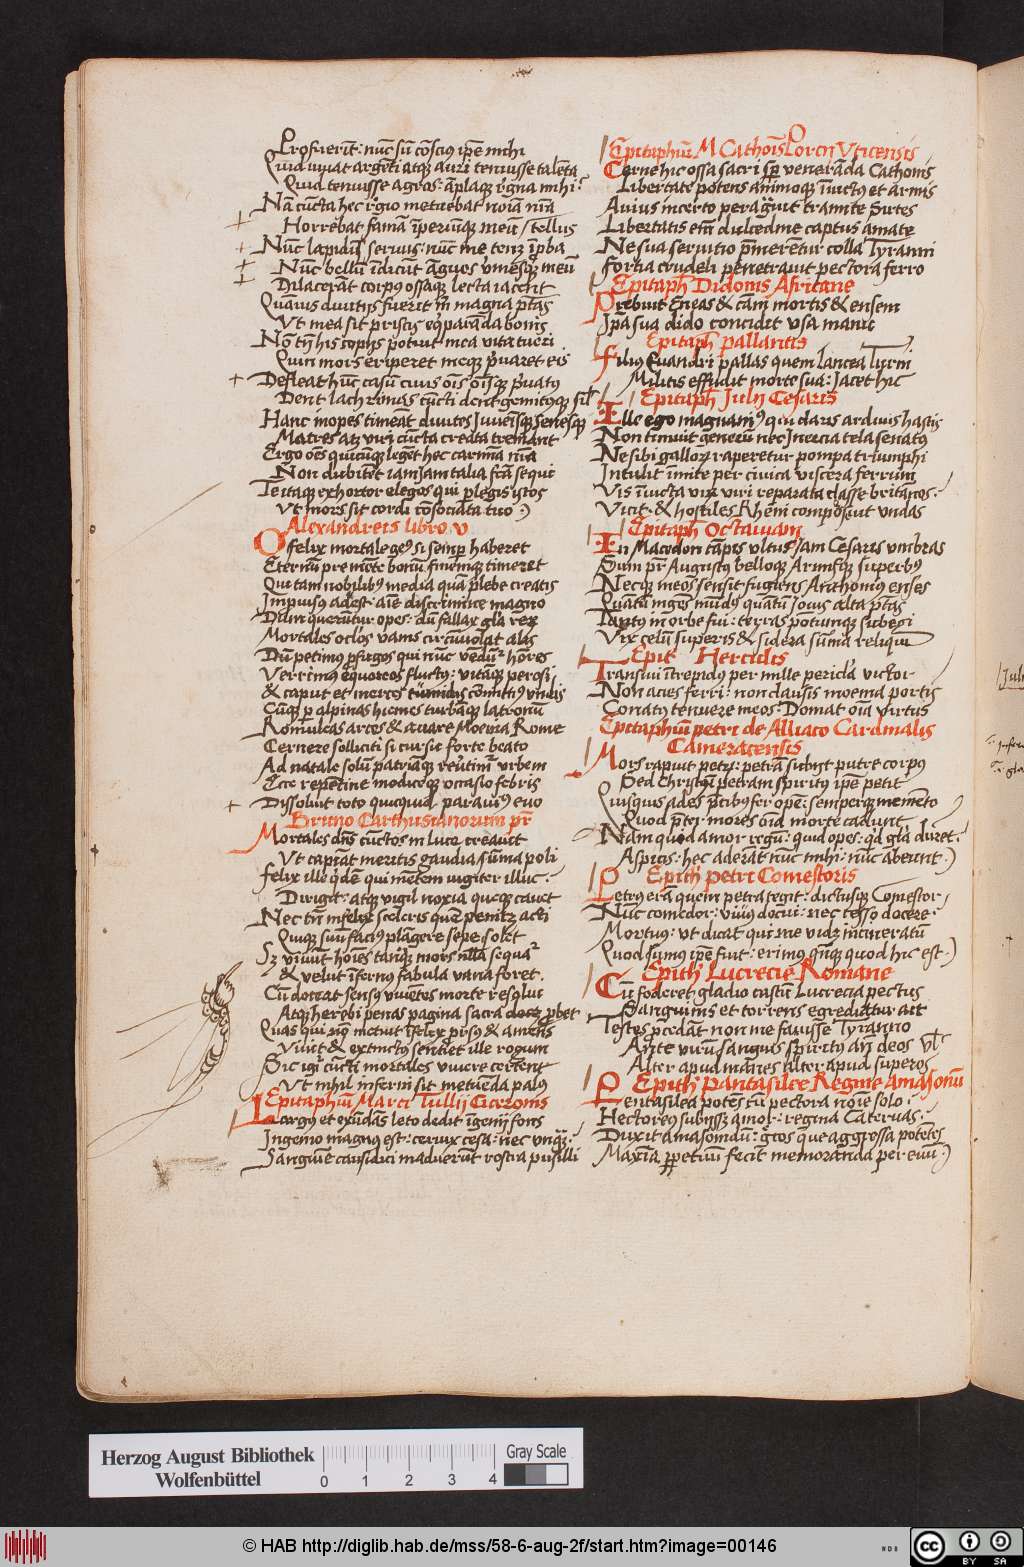 Profuerūt: nūc sū cōsciꝰ ip̄e mihi
Quid iuuat argēti atqꝫ auri tenuisse talēta
Quid tenuisse agros: āplaqꝫ rĕgna mihi?
Nā cūcta hec rĕgio metuebat noīa nr̄a
Horrebat famā īperiūqꝫ meū / tellus
Nūc lapidū seruus: nūc me tenꝫ īproba
Nūc bellū īdicūt āguos vmesqꝫ meū
Dilacerāt corpus ossaqꝫ lecta iacent
Quāuis diuitijs fuerit m̄ magna p̄tās
Vt mea sit priscis eq̄parāda bonis
Nō tn̄ his copijs potiut mea vita tueri
Quin mors eriperet meqꝫ p̄uaret eis
Defleat hūc casū ciuis oīs oīsqꝫ p̄uatꝰ
Dent lachrimas cūcti dent gemitūqꝫ sil̄
Hanc inopes timeāt diuites Juueīsqꝫ senesqꝫ
Matres atqꝫ viri cūcta creata tremant
Ergo oēs quicūqꝫ legēt hec carmīa nr̄a
Non dubitēt iam Jam talia fcā sequi
Te itaqꝫ exhortor elegos qui plegis istos
Vt mors sit cordi cōsociata tuo
Alexandreis libro v
O felix mortale genꝰ si semp haberet
Eternū pre mēte bonū finēqꝫ timeret
Qui tam nobilibꝰ media quā plebe creatis
Impuisꝰ adest: aīe discrimine magno
Dum querūtur opes: dū fallax gl̄a reꝝ
Mortales oc̄los vanis circūuolat alis
Dū petimꝰ p̄fugos qui nūc vedūt hōres
Verrimꝰ equoreos fluctꝰ: vitāqꝫ perosi
& caput et merces tūmidis cōmittimꝰ vndis
Cūqꝫ p alpinas hiemes turbāqꝫ latronū
Romuleas arces & auare Moenia Rome
Cernere solliciti si cursu forte beato
Ad natale solū patriāqꝫ reūtimꝰ vrbem
Ecce repētine modiceqꝫ occasio febris
Dissoluit toto quicquid parauimꝰ euo
Bruno Carthusianorum pr̄
Mortales dn̄s cūctos in luce creauit
Vt capiāt meritis gaudia sūma poli
felix ille q̇dē qui mētem iugiter illuc:
Dirigit: atqꝫ vigil noxia queqꝫ cauet
Nec tn̄ infelix sceleris quē penitꝫ acti
Quiqꝫ suū facinꝰ plāgere sepe solet
Sꝫ viuūt hoīes tanqꝫ mors nlla sequat͛
& velut īfernꝰ fabula vana foret.
Cū doceat sensus viuētes morte resolui
Atqꝫ herebi penas pagina sacra docꝫ probet
Quas qui nō metuit īfelix prorsus & amēs
Viuit & extinctus sentiet ille rogum
Sic igit͛ cūcti mortales viuere certent
Vt nihil inferni sit metuēda palus
Epitaphiū Marci Tullij Ciceronis
Largus et exūdās leto dedit īgenij fons
Ingenio magnꝰ est: ceruix cesa: nec vnqꝫ:
Sanguīe causidici maduerūt rostra pusilli
Epitaphiū M Cathoīs Porcij Vticensis
Cerne hic ossa sacri sp̄ venerāda Cathonis
Libertate potens animoqꝫ īuictꝰ et armis
Auius incerto peragrauit tramite Sirtes
Libertatis em̄ dulcedīne captus amate
Ne sua seruitio p̄merētur colla Tyranni
fortia crudeli penetrauit pectora ferro
Epitaph̄ Didonis Africane
Prebuit Eneas & cām mortis & ensem
Ip̄a sua dido concidit vsa manu
Epitaph̄ pallantis
Filius Euandri pallas quem lancea Turni
Militis effudit morte sua: Jacet hic
Epitaph̄ Julij Cesaris
Ille ego magnanimꝰ qui claris arduus hastis
Non timuit generū nec Inercia tela senatus
Ne sibi galloꝝ raperetur pompa triumphi
Intulit īmite per ciuica viscera ferrum
Vis īuicta vix viri reparata classe britānos:
Vicit: & hostiles Rheni composuit vndas
Epitaph̄ Octauiani
In Macedon cāpis vltus Jam Cesaris vmbras
Sum pr̄ Augustꝰ belloqꝫ Armisqꝫ superbꝰ
Necqꝫ meos sensit fugiens Anthoniꝰ enses
Quātā inges mūdus quātū Iouis alta p̄tās
Tantꝰ in orbe fui: terras pōtumqꝫ subegi
Vix celū superis & sidera sūma reliqui
Epit Herculis
Transiui ītrepidus per mille pericl̄a victor
Non acies ferri: non clausis moenia portis
Conatꝰ tenuere meos: Domat oīa virtus
Epitaphiū petri de Alliaco Cardinalis
Cameracensis
Mors rapuit petꝝ: petrā subijt putre corpꝰ
Sed christum petram spiritus ipē petit
Quisquis ades p̄cibꝰ fer opē: semperqꝫ memēto
Quod p̄ter mores oīa morte cadunt
Nam quod amor regū: quid opes: qd gl̄a duret:
Aspicis: hec aderāt nūc mihi: nūc abeunt.
Epitħ petri Comestoris
Petrꝰ erā quem petra tegit: dictusqꝫ Comestor
Nūc comedor: viuus docui: nec cesso docere.
Mortuꝰ: vt dicat qui me videt incineratū
Quod sumus ipē fuit: erimus quāqꝫ quod hic est.
Epitħ Lucrecie Romane
Cū foderet gladio castū Lucrecia pectus
Sanguinis et torrens egrediatur ait
Testes p̄cedāt non me fauisse Tyranno
Ante virū sanguis spiritus an̄ deos vl̄
Alter apud manes alter apud superos
Epitħ Pantasilee Regine Amasonū
Pentasilea potēs cū pectora noīe solo.
Hectoreo subijssꝫ amor: regina Cateruas.
Duxit amasonidū: gr̄cos que aggressa potētes
Marcia p̄petuū fecit memorāda per euū.
Herzog August Bibliothek
Wolfenbüttel
0 1 2 3 4
Gray Scale
© HAB http://diglib.hab.de/mss/58-6-aug-2f/start.htm?image=00146
CC BY SA